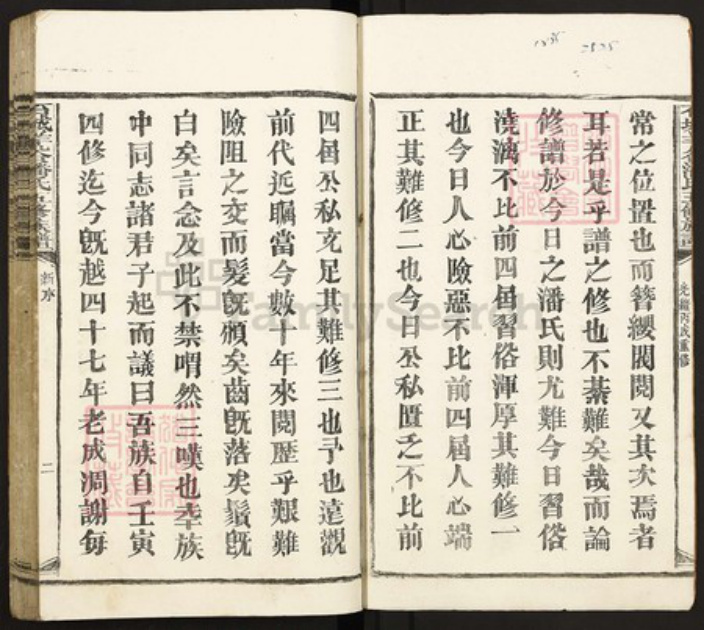 常之位置也而簪纓閥閱又其次焉者
耳若是乎譜之修也不綦難矣哉而論
修譜於今日之潘氏則尤難今日習俗
澆漓不比前四屆習俗渾厚其難修一
也今日人心險惡不比前四屆人心端
正其難修二也今日公私匱乏不比前
四屆公私充足其難修三也予也遠觀
前代近矚當今數十年來閱歷乎艱難
險阻之交而髮既頒矣齒既落矣鬚既
白矣言念及此不禁喟然三嘆也幸族
中同志諸君子起而議曰吾族自壬寅
四修迄今既越四十七年老成凋謝每
新序
二
光緒丙戌重修
FamilySearch
1835
2835